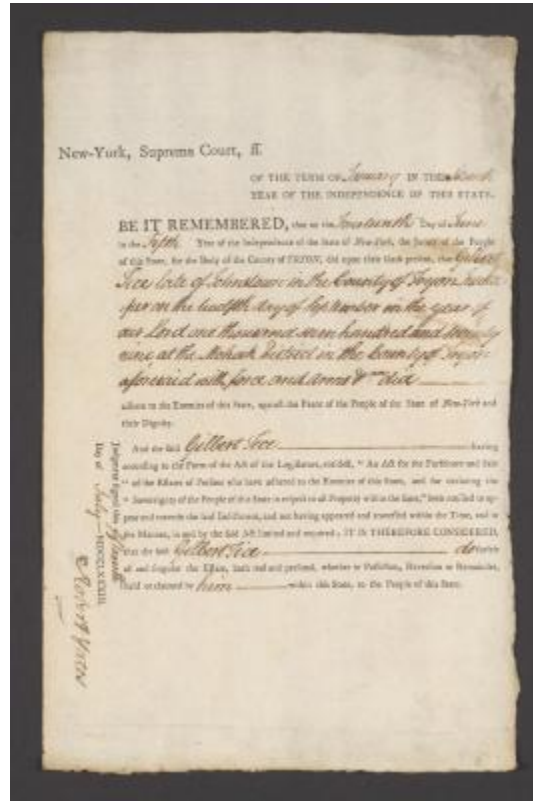 New-York, Supreme Court, ss.
OF THE TERM OF January IN THE
YEAR OF THE INDEPENDENCE OF THIS STATE.
BE IT REMEMBERED, that on the fourteenth Day of June
in the Fifth Year of the Independence of the State of New-York, the Jurors of the People
of this State, for the Body of the County of TRYON, did upon their Oath present, that Gilbert
Tice late of Johnstown in the County of Tryon
on the twelfth day of September in the year of
our Lord one thousand seven hundred and seventy
nine at the Mohawk District in the County of Tryon
aforesaid with force and Arms &c did
adhere to the Enemies of this State, against the Peace of the People of the State of New-York and
their Dignity.
And the said Gilbert Tice having
according to the Form of the Act of the Legislature, entitled, "An Act for the Forfeiture and Sale
" of the Estates of Persons who have adhered to the Enemies of this State, and for declaring the
" Sovereignty of the People of this State in respect to all Property within the same," been notified to ap-
pear and traverse the said Indictment, and not having appeared and traversed within the Time, and in
the Manner, in and by the said Act limited and required; IT IS THEREFORE CONSIDERED,
that the said Gilbert Tice do forfeit
all and singular the Estate, both real and personal, whether in Possession, Reversion or Remainder,
held or claimed by him within this State, to the People of this State.
Judgment signed this
Day of July MDCCLXXXIII.
Robert Yates